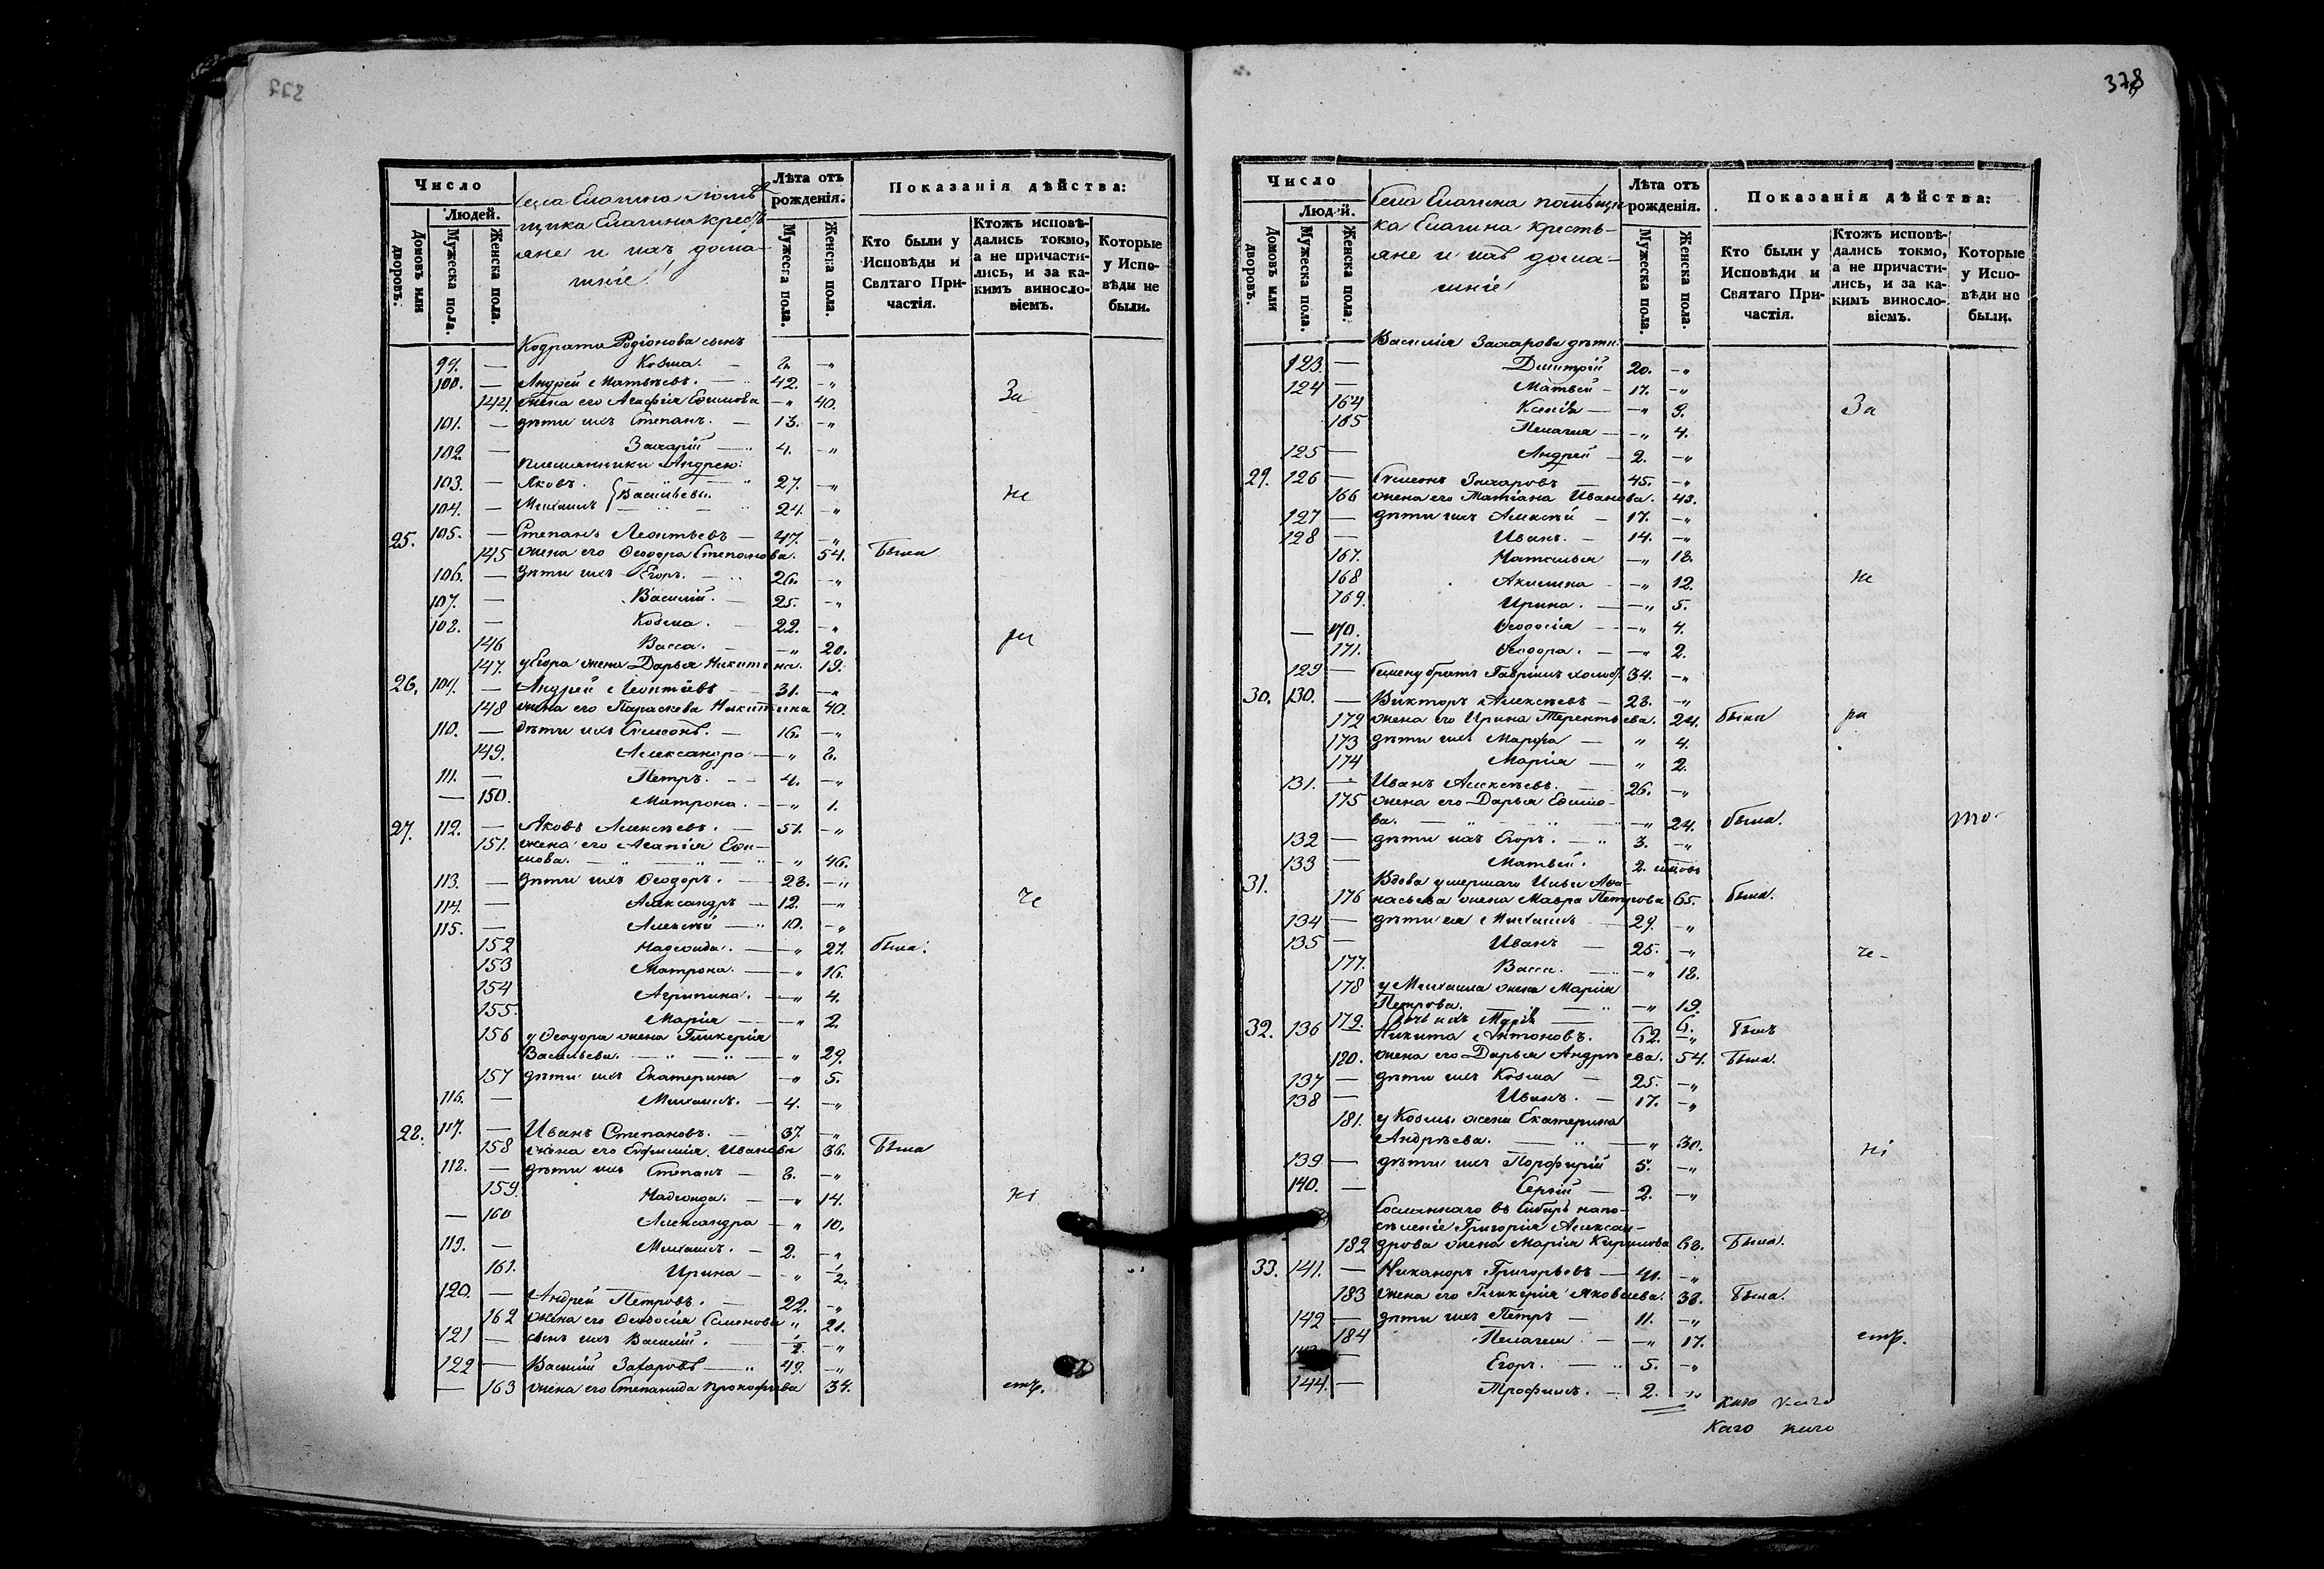 378
Число
Людей.
Домовъ или дворовъ.
Мужеска пола.
Женска пола.
Села Елагина помѣ-
щика Елагина кресть-
яне и ихъ дома-
шніе
Лѣта отъ рожденія.
Мужеска пола.
Женска пола.
Показанія дѣйства:
Кто были у Исповѣди и Святаго Причастія.
Ктожъ исповѣдались токмо, а не причастились, и за какимъ винословіемъ.
Которые у Исповѣди не были.
Кодрата Родіонова сынъ
99. — Козма. — —„
100. — Андрей Матвѣевъ. — 42. —„
144. жена его Агафія Ефимова —„ 40.
101. — дѣти ихъ Степанъ. — 13. —„
102. — Захарій — 4. —„
племянники Андрею:
103. — Яковъ. 27. —„
Васильевы.
104. — Михаилъ 24. —„
25. 105. — Степанъ Леонтьевъ — 47. —„
145 жена его Ѳеодора Степанова. 54. была
106. — дѣти ихъ Егоръ. — 26. —„
107. — Василій. — 25. —„
108. — Козма. — 22. —„
146 Васса. — —„ 20.
147. у Егора жена Дарья Никитина. 19.
26. 109. — Андрей Леонтіевъ — 31. —„
148 жена его Параскева Никитина 40.
110. — дѣти ихъ Симеонъ. — 16. —„
149. Александра — —„ 8.
111. — Петръ. — 4. —„
— 150. Матрона. — —„ 1.
27. 112. — Яковъ Алексѣевъ. — 51. —„
151. жена его Агапія Ефи-
мова. — „ — „ — „ 46.
113. — дѣти ихъ Ѳеодоръ. — 28. —„
114. — Александръ — 12. —„
115. — Алексѣй — 10. —„
152 Надежда. — —„ 27. была.
153 Матрона. — —„ 16.
154 Агрипина. — —„ 4.
155. Марія — —„ 2
156 у Ѳеодора жена Гликерія
Васильева. — „ — „ — „ 29.
157 дѣти ихъ Екатерина —„ 5.
116. — Михаилъ. — 4. —„
28. 117. — Иванъ Степановъ. — 37. —„
158 жена его Евфимія Иванова 36. была
118. — дѣти ихъ Степанъ — 8. —„
159. Надежда. — —„ 14.
— 160 Александра —„ 10.
119. — Михаилъ. — 2. —„
161. Ирина — —„ 1/2.
120. — Андрей Петровъ. — 22. —„
162 жена его Ѳеодосія Семенова „ 21.
121 — сынъ ихъ Василій. — 1/2. —„
122 — Василій Захаровъ — 49. —„
— 163 жена его Степанида Прокофьева 34.
Число
Людей.
Домовъ или дворовъ.
Мужеска пола.
Женска пола.
Села Елагина помѣщи-
ка Елагина кресть-
яне и ихъ дома-
шніе
Лѣта отъ рожденія.
Мужеска пола.
Женска пола.
Показанія дѣйства:
Кто были у Исповѣди и Святаго Причастія.
Ктожъ исповѣдались токмо, а не причастились, и за какимъ винословіемъ.
Которые у Исповѣди не были.
Василія Захарова дѣти:
123. — Димитрій 20. —„
124 — Матвѣй — 17. —„
164 Ксенія — —„ 9.
165 Пелагея — —„ 4.
125 — Андрей — 2. —„
29. 126 — Симеонъ Захаровъ — 45. —„
166 жена его Татіана Иванова. 43.
127 — дѣти ихъ Алексѣй — 17. —„
128 — Иванъ. — 14. —„
167. Наталья —„ 18.
168 Акилина —„ 12.
169. Ирина. — —„ 5.
— 170. Ѳеодосія —„ 4.
171. Ѳеодора. — —„ 2.
129 — Семену братъ Гавріилъ холос. 34. —„
30. 130. — Викторъ Алексѣевъ — 28. —„
172 жена его Ирина Терентьева. 24. была
173 дѣти ихъ Марфа — „ 4.
174 Марія — „ 2.
131. — Иванъ Алексѣевъ. — 26. —„
175 жена его Дарья Ефимо-
ва. — „ — „ — „ 24. была.
132 — дѣти ихъ Егоръ. — 3. —„
133 — Матвѣй. 2.
31. Вдова умершаго Ильи Аѳа-
176 насьева жена Мавра Петрова 65. была.
134 — дѣти ея Михаилъ 29. —„
135 — Иванъ — 25. —„
177. Васса. — —„ 18.
178 у Михаила жена Марія
Петрова. — —„ 19.
179. дочь ихъ Марія — 6.
32. 136 Никита Антоновъ. 62. —„ былъ
180. жена его Дарья Андреева. 54. была.
137 — дѣти ихъ Козма — 25. —„
138 — Иванъ. — 17. —„
181. у Козмы жена Екатерина
Андрѣева. — „ — „ 30.
139 — дѣти ихъ Порфирій 5. —„
140. — Сергій — 2. —„
Сосланнаго въ Сибирь на по-
селеніе Григорія Алексан-
182 дрова жена Марія Кирилова 68. была.
33. 141. — Никаноръ Григорьевъ — 41. —„
183 жена его Гликерія Яковлева. 38. была.
142 — дѣти ихъ Петръ — 11. —„
184 Пелагея — —„ 17.
— Егоръ. — 5. —„
144. — Трофимъ. — 2. —„